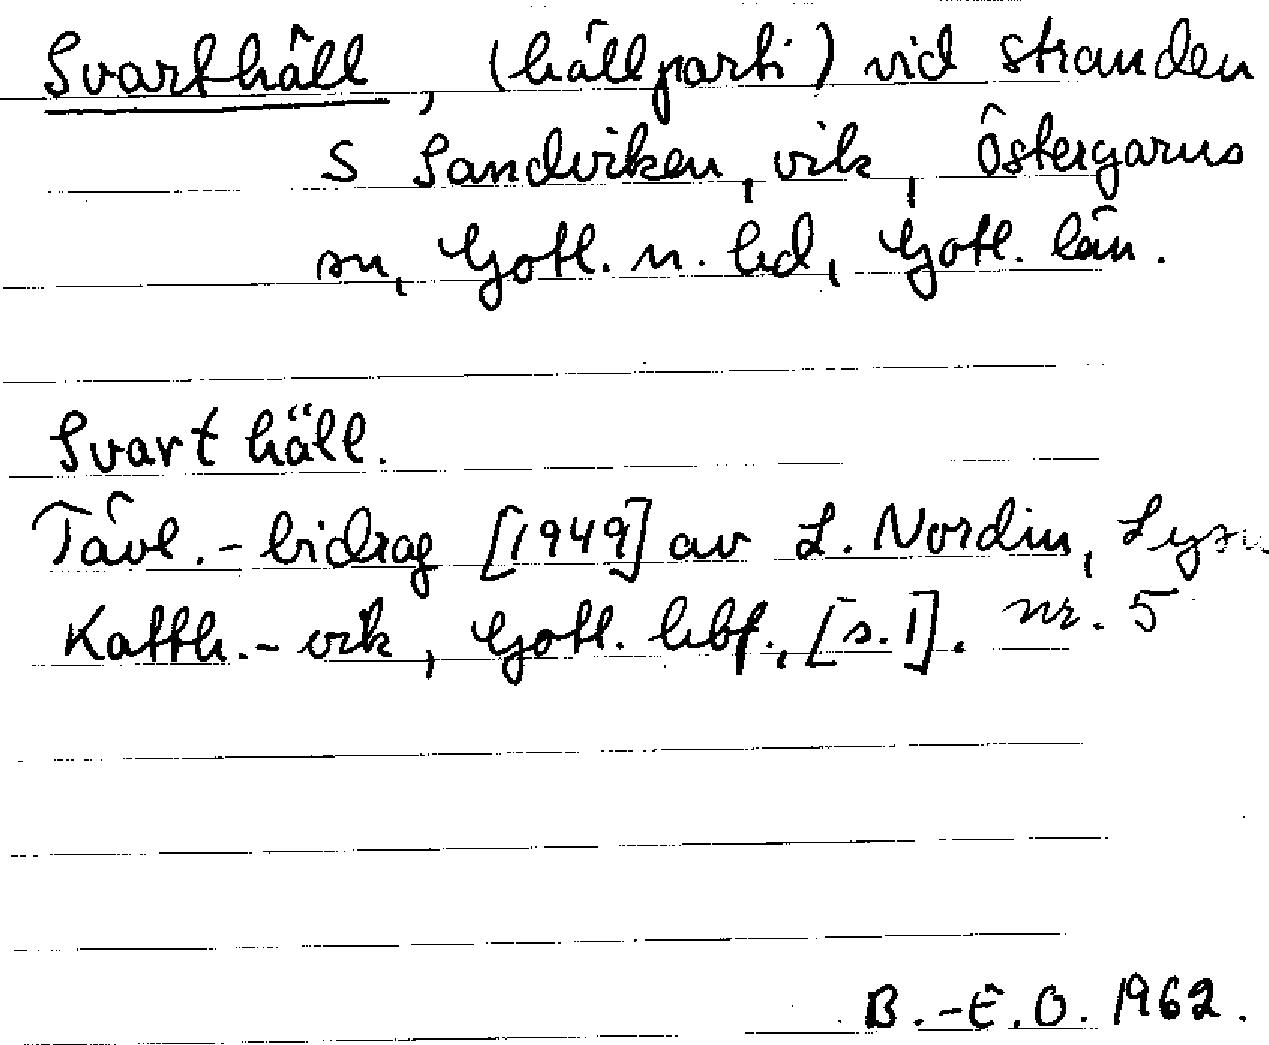 Svarthäll, (hällparti) vid stranden
S Sandviken, vik, Östergarns
sn, Gotl. n. hd, Gotl. län.
Svart häll.
Tävl.-bidrag [1949] av L. Nordin,
Katth.-vik, Gotl. hbf., [s. 1]. nr. 5
B.-E.O. 1962.